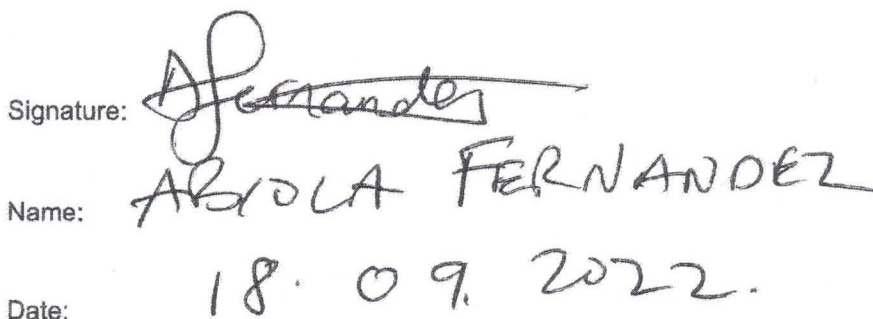 Signature: AFernandez
Name: ABIOLA FERNANDEZ
Date: 18. 09. 2022.